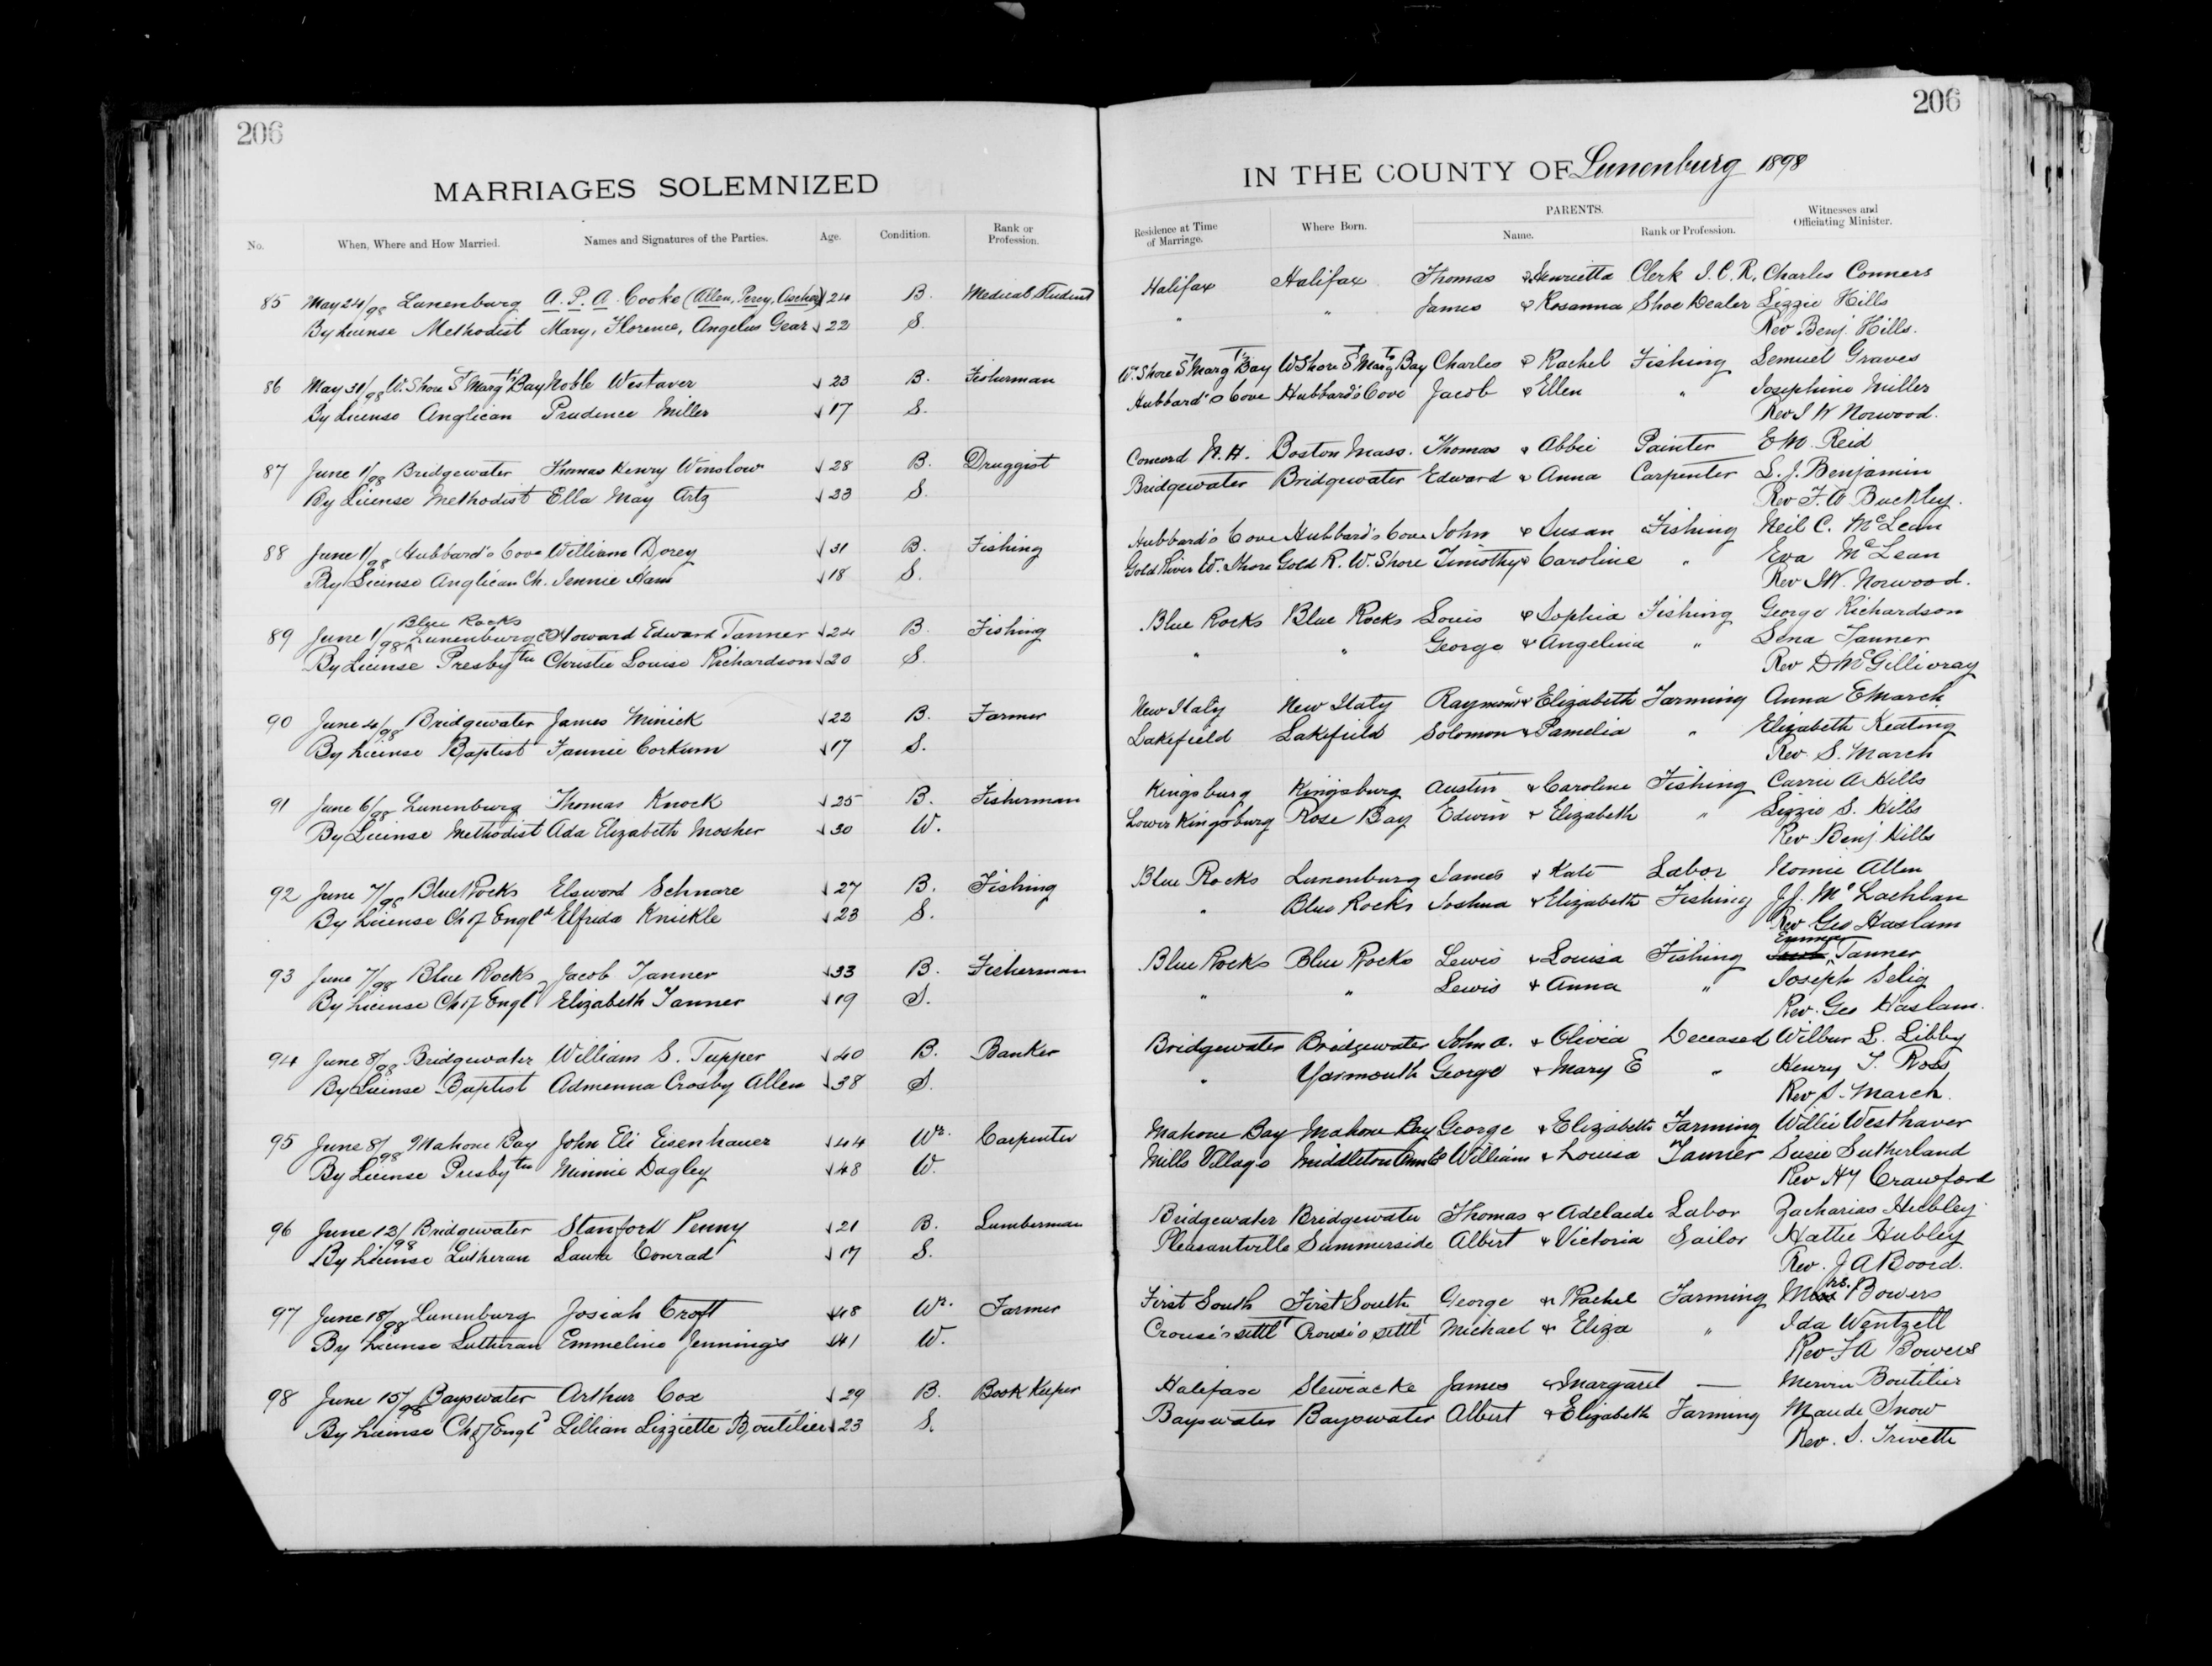 206
206
MARRIAGES SOLEMNIZED
IN THE COUNTY OF Lunenburg 1898
No. When, Where and How Married. Names and Signatures of the Parties. Age. Condition. Rank or Profession. Residence at Time of Marriage. Where Born. PARENTS. Name. Rank or Profession. Witnesses and Officiating Minister.
85 May 24/98 Lunenburg A. P. A. Cooke (Allen, Percy, Ascher) 24 B. Medical Student Halifax Halifax Thomas & Henrietta Clerk I.C.R. Charles Conners
By License Methodist Mary, Florence, Angelus Gear 22 S. " " James & Rosanna Shoe Dealer Lizzie Hills
Rev Benj. Hills.
86 May 31/98 W. Shore St Margts Bay Noble Westaver 23 B. Fisherman Wn. Shore St Margts Bay W Shore St Margts Bay Charles & Rachel Fishing Lemuel Graves
By License Anglican Prudence Miller 17 S. Hubbard's Cove Hubbard's Cove Jacob & Ellen " Josephine Miller
Rev J W Norwood.
87 June 1/98 Bridgewater Thomas Henry Winslow 28 B. Druggist Concord N.H. Boston Mass. Thomas & Abbie Painter E M Reid
By License Methodist Ella May Artz 23 S. Bridgewater Bridgewater Edward & Anna Carpenter L. J. Benjamin
Rev F. A Buckley.
88 June 1/98 Hubbard's Cove William Dorey 31 B. Fishing Hubbard's Cove Hubbard's Cove John & Susan Fishing Neil C. McLean
By License Anglican Ch. Jennie Ham 18 S. Gold River W. Shore Gold R. W. Shore Timothy & Caroline " Eva McLean
Rev J W. Norwood.
Blue Rocks
89 June 1/98 Lunenburg Co Howard Edward Tanner 24 B. Fishing Blue Rocks Blue Rocks Louis & Sophia Fishing George Richardson
By License Presbytn Christie Louise Richardson 20 S. " " George & Angelina " Lena Tanner
Rev D McGillivray
90 June 4/98 Bridgewater James Minick 22 B. Farmer New Italy New Italy Raymond & Elizabeth Farming Anna E March
By License Baptist Fannie Corkum 17 S. Lakefield Lakefield Solomon & Pamelia " Elizabeth Keating
Rev. S. March
91 June 6/98 Lunenburg Thomas Knock 25 B. Fisherman Kingsburg Kingsburg Austin & Caroline Fishing Carrie A Hills
By License Methodist Ada Elizabeth Mosher 30 W. Lower Kingsburg Rose Bay Edwin & Elizabeth " Lizzie S. Hills
Rev Benj Hills
92 June 7/98 Blue Rocks Elsword Schnare 27 B. Fishing Blue Rocks Lunenburg James & Kate Labor Nomie Allen
By License Ch of Engld Elfrida Knickle 23 S. " Blue Rocks Joshua & Elizabeth Fishing J. J. McLachlan
Rev Geo Haslam
Emma
93 June 7/98 Blue Rocks Jacob Tanner 33 B. Fisherman Blue Rocks Blue Rocks Lewis & Louisa Fishing Tanner
By License Ch of Engld Elizabeth Tanner 19 S. " " Lewis & Anna " Joseph Selig
Rev. Geo Haslam.
94 June 8/98 Bridgewater William S. Tupper 40 B. Banker Bridgewater Bridgewater John A. & Olivia Deceased Wilbur L. Libby
By License Baptist Admenna Crosby Allen 38 S. " Yarmouth George & Mary E " Henry T. Ross
Rev S. March.
95 June 8/98 Mahone Bay John Eli Eisenhauer 44 Wr. Carpenter Mahone Bay Mahone Bay George & Elizabeth Farming Willie Westhaver
By License Presbytn Minnie Dagley 48 W. Mills Village Middleton Ann Co William & Louisa Tanner Susie Sutherland
Rev H Y Crawford
96 June 13/98 Bridgewater Stanford Penny 21 B. Lumberman Bridgewater Bridgewater Thomas & Adelaide Labor Zacharias Hebbley
By License Lutheran Laura Conrad 17 S. Pleasantville Summerside Albert & Victoria Sailor Hattie Hubley
Rev. J A Boord.
97 June 18/98 Lunenburg Josiah Croft 48 Wr. Farmer First South First South George & Rachel Farming Mrs. Bowers
By License Lutheran Emmeline Jennings 41 W. Crouse's settlt Crouse's settlt Michael & Eliza " Ida Wentzell
Rev F A Bowers
98 June 15/98 Bayswater Arthur Cox 29 B. Book Keeper Halifax Stewiacke James & Margaret — Mervin Boutilier
By License Ch of Engld Lillian Lizziette Boutilier 23 S. Bayswater Bayswater Albert & Elizabeth Farming Maude Snow
Rev. S. Trivett